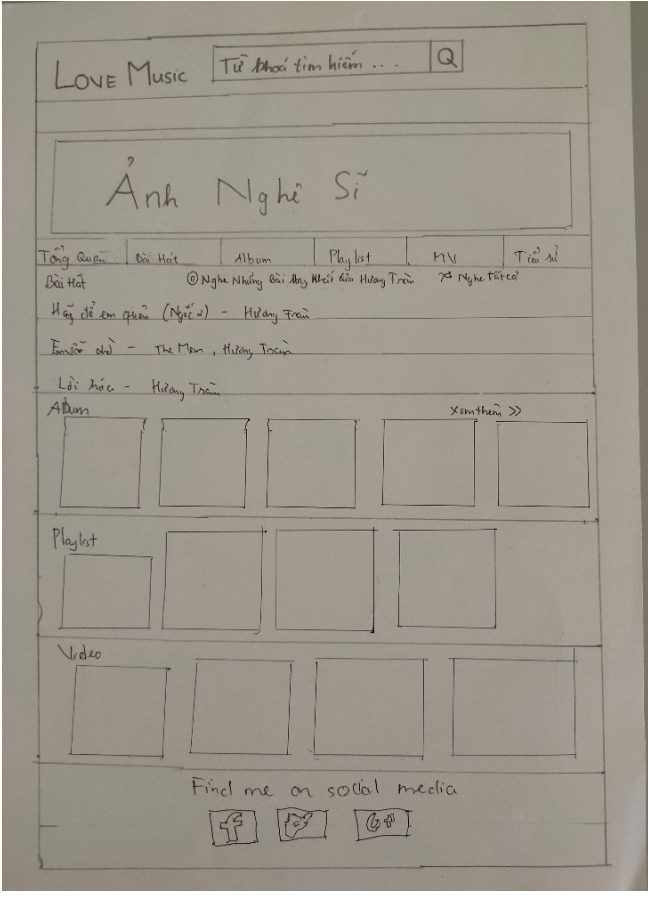 LOVE MUSIC
Từ khoá tìm kiếm ... Q
Ảnh Nghệ Sĩ
Tổng Quan Bài Hát Album Playlist MV Tiểu sử
Bài Hát Nghe Những Bài Hay Nhất Của Hương Tràm Nghe Tất cả
Hãy để em quên (Ngốc 2) - Hương Tràm
Em vẫn chờ - The Men, Hương Tràm
Lời hứa - Hương Tràm
Album Xem thêm >>
Playlist
Video
Find me on social media
f G+